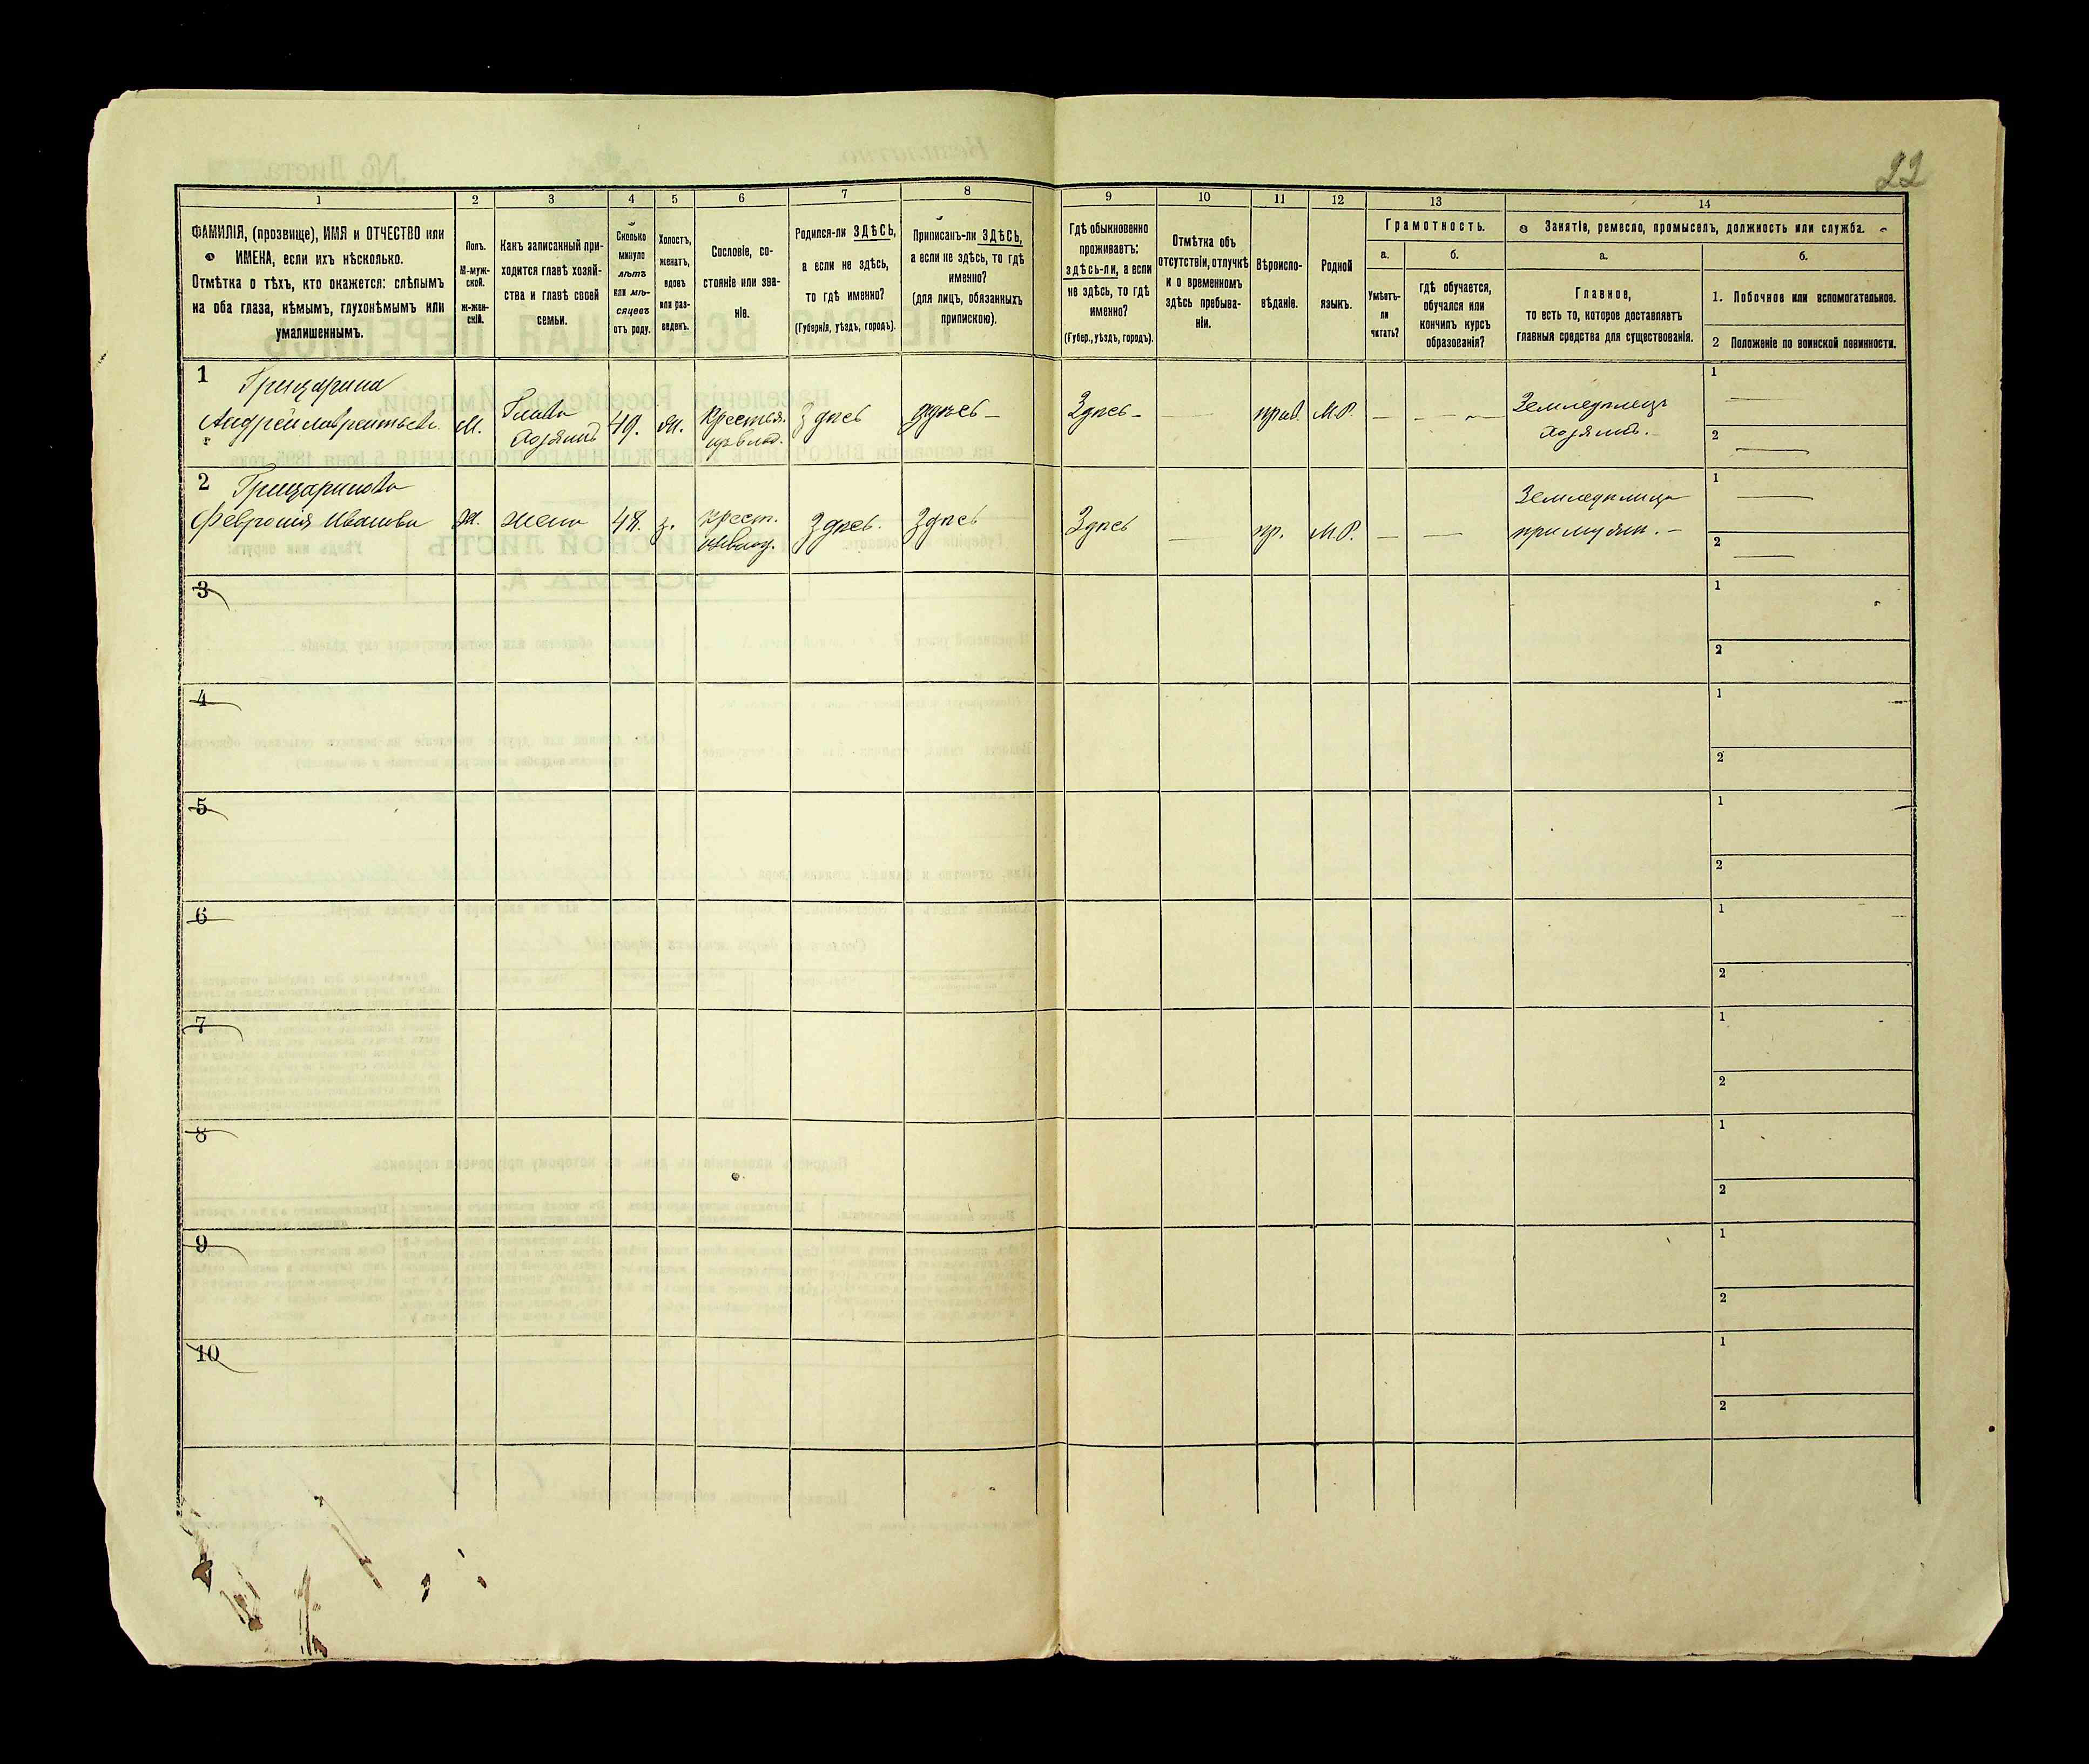 22
1 2 3 4 5 6 7 8 9 10 11 12 13 14
ФАМИЛІЯ, (прозвище), ИМЯ и ОТЧЕСТВО или
ИМЕНА, если ихъ нѣсколько.
Отмѣтка о тѣхъ, кто окажется: слѣпымъ
на оба глаза, нѣмымъ, глухонѣмымъ или
умалишеннымъ.
Полъ.
М-муж-
ской.
ж-жен-
скій.
Какъ записанный при-
ходится главѣ хозяй-
ства и главѣ своей
семьи.
Сколько
минуло
лѣтъ
или мѣ-
сяцевъ
отъ роду.
Холостъ,
женатъ,
вдовъ
или раз-
веденъ.
Сословіе, со-
стояніе или зва-
ніе.
Родился-ли ЗДѢСЬ,
а если не здѣсь,
то гдѣ именно?
(Губернія, уѣздъ, городъ).
Приписанъ-ли ЗДѢСЬ,
а если не здѣсь, то гдѣ
именно?
(для лицъ, обязанныхъ
припискою).
Гдѣ обыкновенно
проживаетъ:
здѣсь-ли, а если
не здѣсь, то гдѣ
именно?
(Губер., уѣздъ, городъ).
Отмѣтка объ
отсутствіи, отлучкѣ
и о временномъ
здѣсь пребыва-
ніи.
Вѣроиспо-
вѣданіе.
Родной
языкъ.
Грамотность.
а.
Умѣетъ-
ли
читать?
б.
гдѣ обучается,
обучался или
кончилъ курсъ
образованія?
Занятіе, ремесло, промыселъ, должность или служба.
а.
Главное,
то есть то, которое доставляетъ
главныя средства для существованія.
б.
1. Побочное или вспомогательное.
2 Положеніе по воинской повинности.
1
Андрей Лаврентьевъ
М.
Глава
хозяинъ
49.
Ж.
Крестья.
изъ влад.
Здѣсь
Здѣсь —
Здѣсь —
прав.
М.Р.
— — —
Земледѣлецъ
хозяинъ. —
1 —
2 —
2
Февронія Иванова
Ж.
жена
48.
з.
крест.
изъ влад.
Здѣсь.
Здѣсь
Здѣсь
—
пр.
М.Р.
— —
Земледѣлица
при мужѣ. —
1 —
2 —
3
1
2
4
1
2
5
1
2
6
1
2
7
1
2
8
1
2
9
1
2
10
1
2